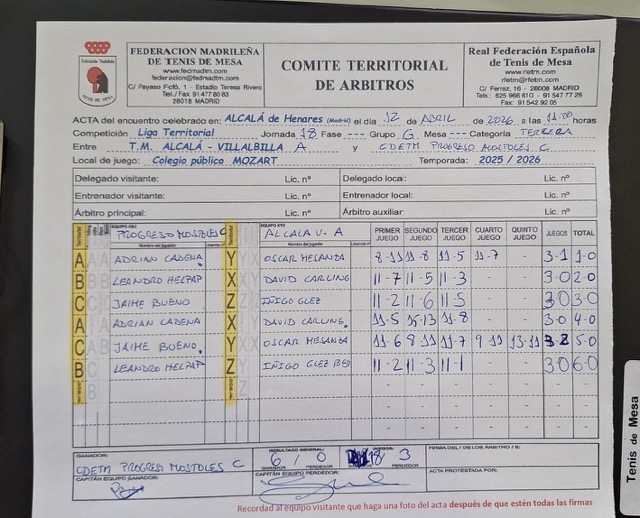 FEDERACION MADRILEÑA
DE TENIS DE MESA
www.fedmadtm.com
federacion@fedmadtm.com
C/ Payaso Fofó, 1 - Estadio Teresa Rivero
Tel./Fax 91 477 80 83
28018 MADRID
COMITE TERRITORIAL
DE ARBITROS
Real Federación Española
de Tenis de Mesa
www.rfetm.com
rfetm@rfetm.com
C/ Ferraz, 16 - 28008 MADRID
Tels.: 625 966 610 - 91 547 77 26
Fax: 91 542 92 05
ACTA del encuentro celebrado en: ALCALÁ de Henares (Madrid) el día 12 de ABRIL de 2026, a las 11:00 horas
Competición Liga Territorial Jornada 18 Fase --- Grupo G Mesa --- Categoría TERCERA
Entre T.M. ALCALÁ - VILLALBILLA A y CDETM PROGRESO MOSTOLES C
Local de juego: Colegio público MOZART Temporada: 2025 / 2026
Delegado visitante: Lic. nº Delegado local: Lic. nº
Entrenador visitante: Lic. nº Entrenador local: Lic. nº
Árbitro principal: Lic. nº Árbitro auxiliar: Lic. nº
EQUIPO ABC PROGRESO MOSTOLES C EQUIPO XYZ ALCALA V. A PRIMER JUEGO SEGUNDO JUEGO TERCER JUEGO CUARTO JUEGO QUINTO JUEGO JUEGOS TOTAL
Nombre del jugador Nombre del jugador
A ADRIAN CADENA Y OSCAR MESANZA 8-11 11-8 11-5 11-7 - 3-1 1-0
B LEANDRO HELPAP X DAVID CARLING 11-7 11-5 11-3 - - 3-0 2-0
C JAIME BUENO Z IÑIGO GLEZ 11-2 11-6 11-5 - - 3-0 3-0
A ADRIAN CADENA X DAVID CARLING 11-5 15-13 11-8 - - 3-0 4-0
C JAIME BUENO Y OSCAR MESANZA 11-6 8-11 11-7 9-11 13-11 3-2 5-0
B LEANDRO HELPAP Z IÑIGO GLEZ 11-2 11-3 11-1 - - 3-0 6-0
GANADOR:
CDETM PROGRESO MOSTOLES C
RESULTADO GENERAL
6 / 0
GANADOR PERDEDOR
JUEGOS:
18 / 3
PERDEDOR
FIRMA DEL / DE LOS ÁRBITRO / S:
CAPITÁN EQUIPO GANADOR:
CAPITÁN EQUIPO PERDEDOR:
ACTA PROTESTADA POR:
Recordad al equipo visitante que haga una foto del acta después de que estén todas las firmas
Tenis de Mesa